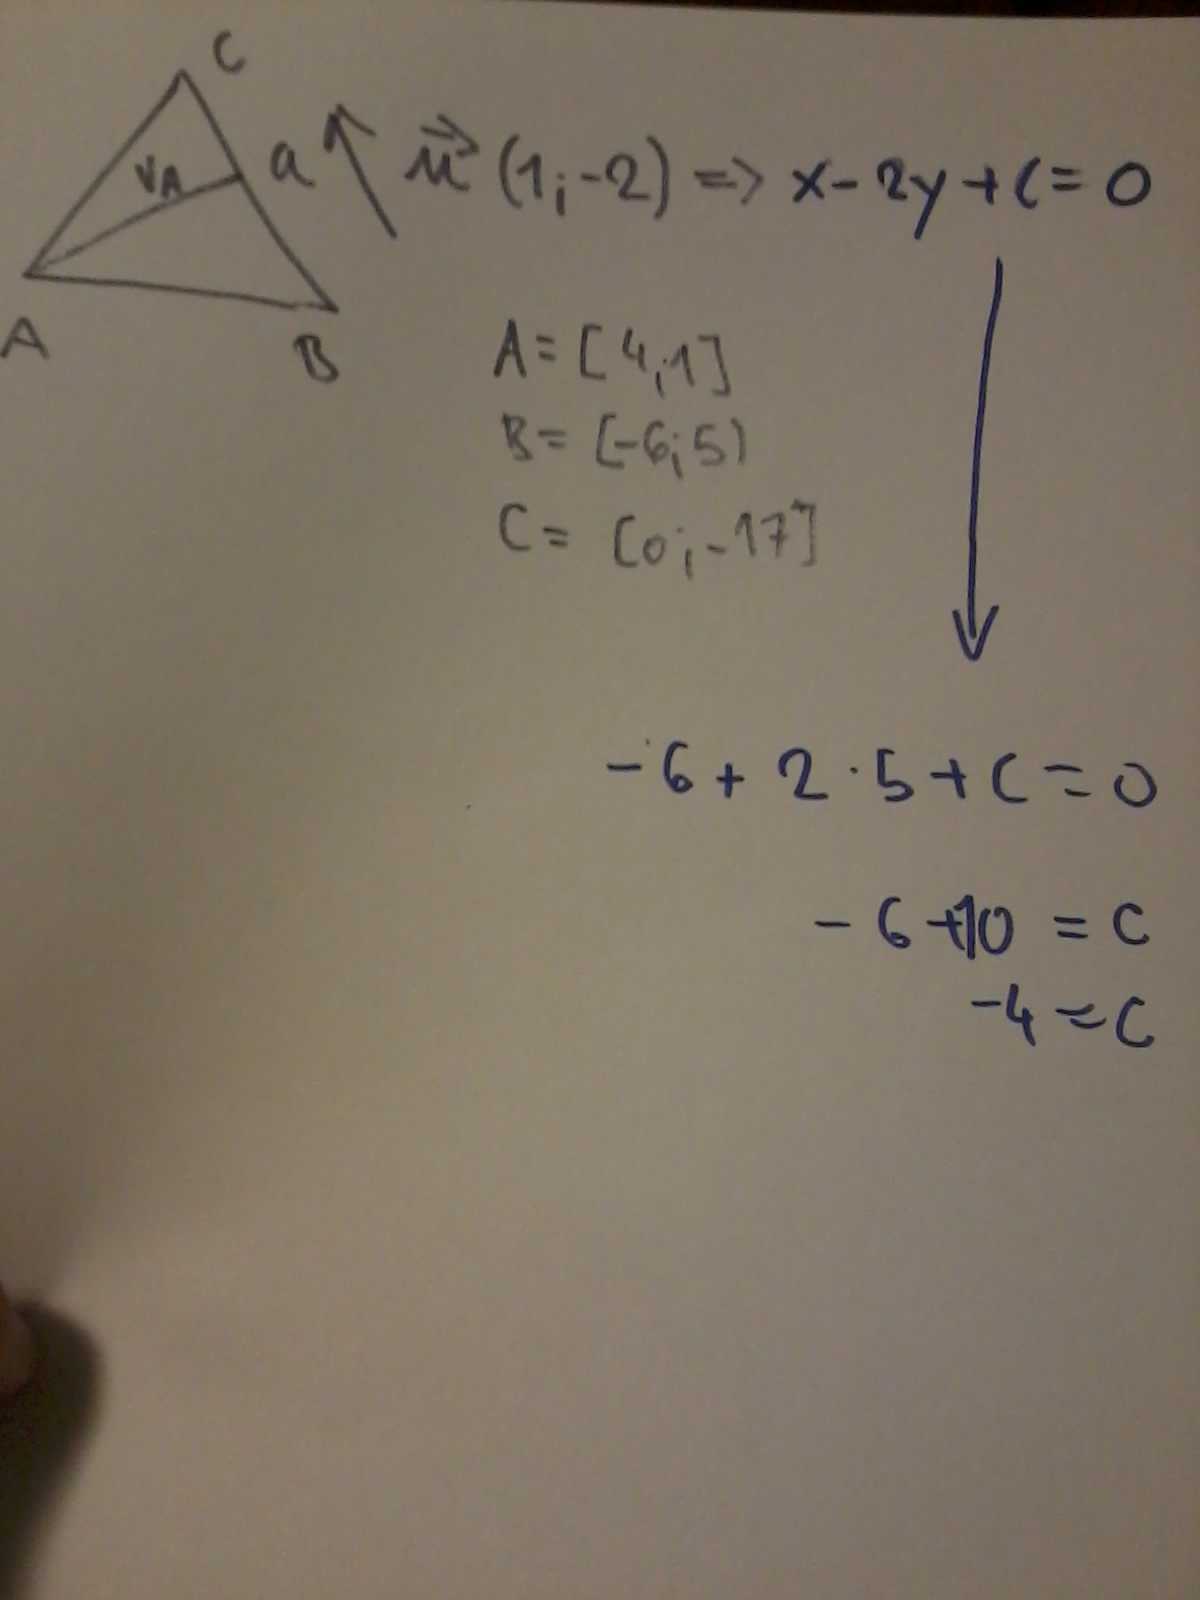 C
v_A a \vec{u} (1;-2) => x - 2y + c = 0
A B
A = [4;1]
B = [-6;5)
C = [0;-17]
-6 + 2·5 + c = 0
-6 +10 = c
-4 = c